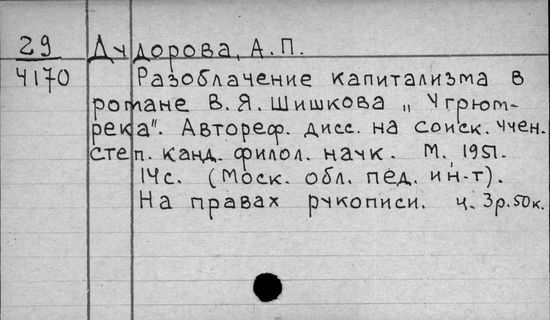 29 Дудорова, А.П.
4170 Разоблачение капитализма в
романе В.Я. Шишкова „Угрюм-
река". Автореф. дисс. на соиск. учен.
степ. канд. филол. наук. М., 1951.
14с. (Моск. обл. пед. ин-т).
На правах рукописи. ц. 3р.50к.